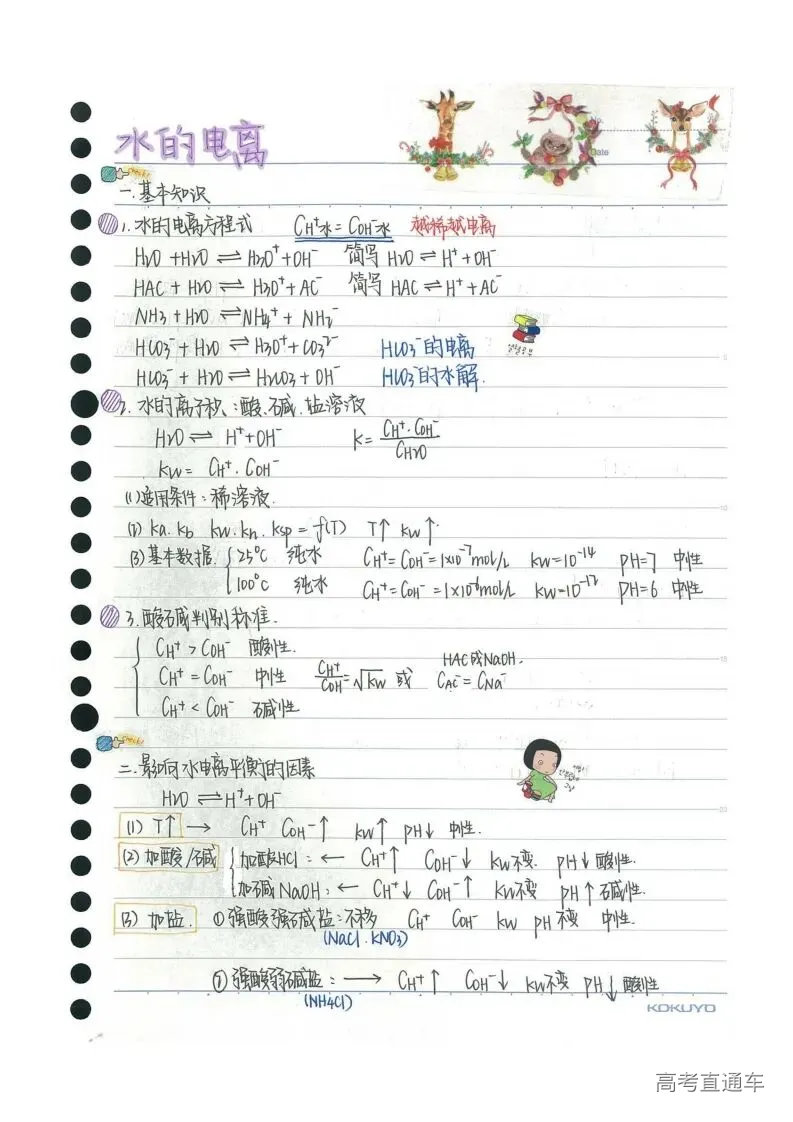 水的电离
Date
一.基本知识
1.水的电离方程式 CH⁺水=COH⁻水 越稀越电离
H₂O+H₂O⇌H₃O⁺+OH⁻ 简写 H₂O⇌H⁺+OH⁻
HAC+H₂O⇌H₃O⁺+AC⁻ 简写 HAC⇌H⁺+AC⁻
NH₃+H₂O⇌NH₄⁺+NH₂⁻
HCO₃⁻+H₂O⇌H₃O⁺+CO₃²⁻ HCO₃⁻的电离
HCO₃⁻+H₂O⇌H₂CO₃+OH⁻ HCO₃⁻的水解.
2.水的离子积:酸.碱.盐溶液
H₂O⇌H⁺+OH⁻ K=CH⁺·COH⁻/CH₂O
Kw=CH⁺·COH⁻
(1)适用条件:稀溶液.
(2) Ka.Kb Kw.Kh.Ksp=f(T) T↑ Kw↑.
(3)基本数据. 25°C 纯水 CH⁺=COH⁻=1×10⁻⁷mol/L Kw=10⁻¹⁴ PH=7 中性
100°C 纯水 CH⁺=COH⁻=1×10⁻⁶mol/L Kw=10⁻¹² PH=6 中性
3.酸碱判别标准.
CH⁺>COH⁻ 酸性.
HAC或NaOH.
CH⁺=COH⁻ 中性 CH⁺/COH⁻=√Kw 或 CAC⁻=CNa⁻
CH⁺<COH⁻ 碱性
二.影响水电离平衡的因素
H₂O⇌H⁺+OH⁻
(1) T↑ → CH⁺ COH⁻↑ Kw↑ PH↓ 中性.
(2)加酸/碱 加酸HCl:← CH⁺↑ COH⁻↓ Kw不变. PH↓酸性.
加碱NaOH:← CH⁺↓ COH⁻↑ Kw不变 PH↑碱性.
(3)加盐. ①强酸强碱盐:不移 CH⁺ COH⁻ Kw PH不变 中性.
(NaCl.KNO₃)
②强酸弱碱盐:→ CH⁺↑ COH⁻↓ Kw不变 PH↓酸性
(NH4Cl)
KOKUYO
高考直通车